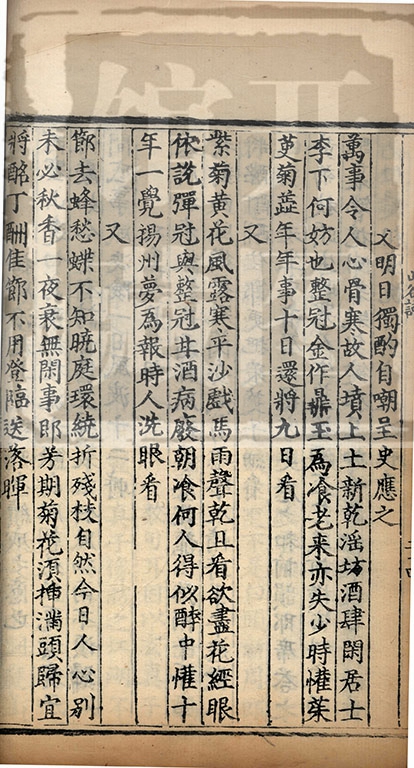 又明日獨酌自嘲呈史應之
萬事令人心骨寒故人墳上土新乾滛坊酒肆閑居士
李下何妨也整冠金作鼎玉為飡老来亦失少時懽茱
萸菊蘂年年事十日還將九日看
又
紫菊黄花風露寒平沙戲馬雨聲乾且看欲盡花經眼
依說彈冠與整冠甚酒病廢朝飡何人得似醉中懽十
年一覺揚州夢為報時人洗眼看
又
節去蜂愁蝶不知曉庭環繞折殘枝自然今日人心别
未必秋香一夜衰無閑事即芳期菊花湏揷滿頭歸宜
將酩丁酬佳節不用登臨送落暉